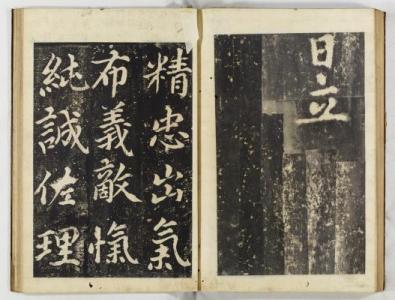 日立
精忠出氣
布義敵愾
純誠佐理